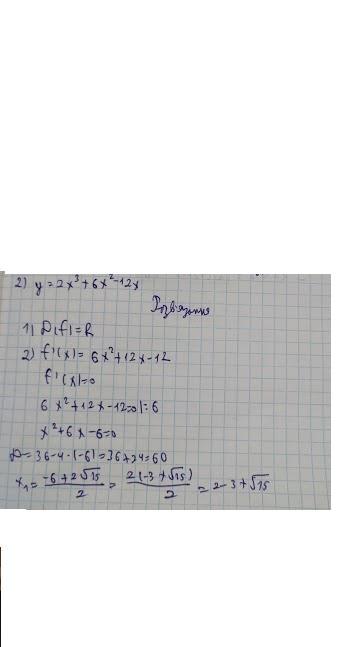 2) y = 2x³ + 6x² - 12x
Розв'язання
1) D(f) = R
2) f'(x) = 6x² + 12x - 12
f'(x) = 0
6x² + 12x - 12 = 0 | : 6
x² + 6x - 6 = 0
D = 36 - 4 · (-6) = 36 + 24 = 60
x₁ = (-6 + 2√15)/2 = 2(-3 + √15)/2 = 2 - 3 + √15